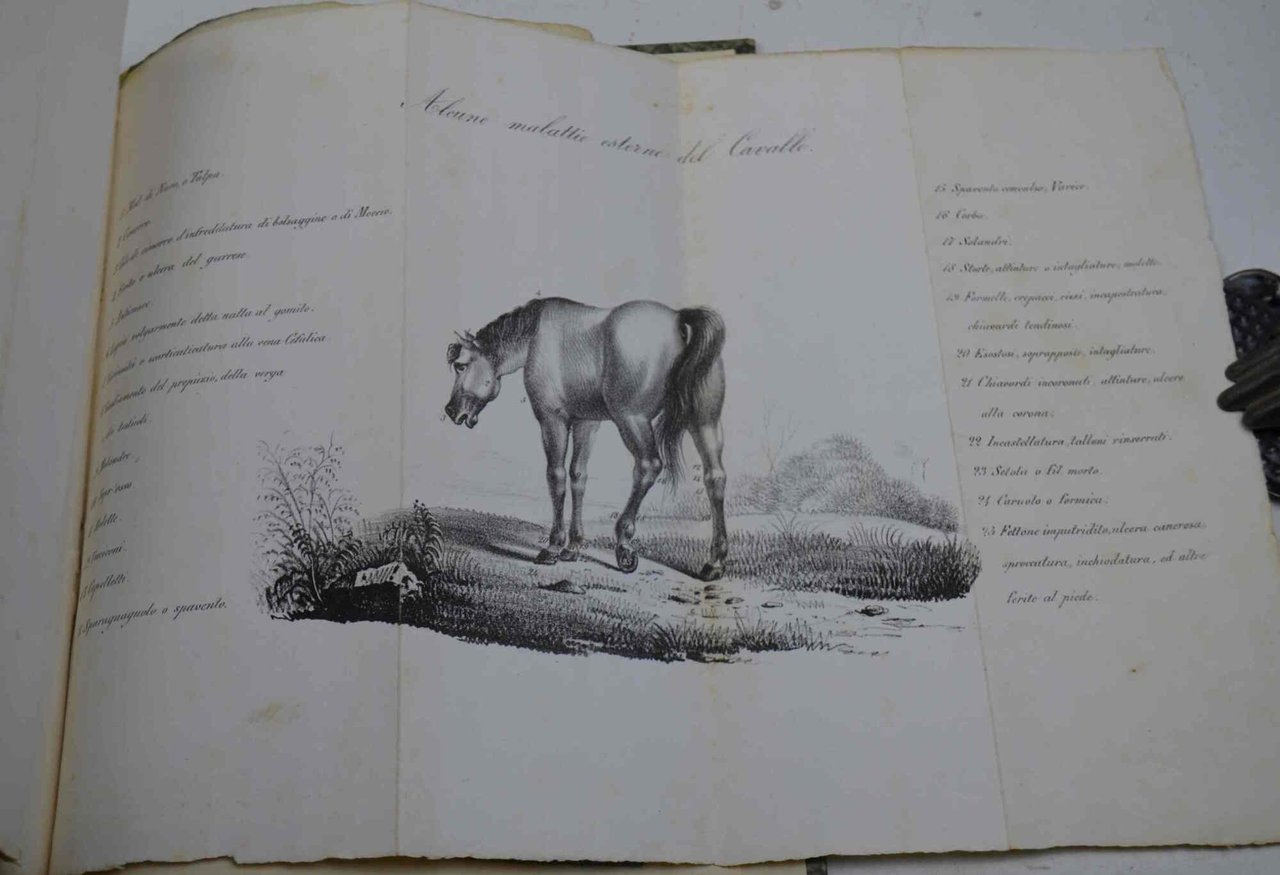 Alcune malattie esterne del Cavallo.
Mal di Nuca, o Talpa.
2 Cimurro.
3 di cimurro, d'infreddatura di bolsaggine o di Moccio.
4 ulcera del garrese.
5 Anticuore.
6 volgarmente detta nalta al gomito.
7 o scorticaticatura alla vena Cefalica
8 del prepuzio, della verga
testicoli.
9 Malandre
10 Sopr'osso
Molette.
Capelletti.
Sparagnagnolo o spavento.
15 Spavento convulso, Varice.
16 Corba.
17 Solandri.
18 Storte, attinture o intagliature, molette.
19 Formelle, crepacci, ricci, incapestratura,
chiavardi tendinosi.
20 Esostosi, sopraposte, intagliature.
21 Chiavardi incoronati, attinture, ulcere
alla corona.
22 Incastellatura, talloni rinserrati.
23 Setola o fil morto.
24 Caruolo o formica.
25 Fettone imputridito, ulcera cancrosa,
sproccatura, inchiodatura, ed altre
ferite al piede.